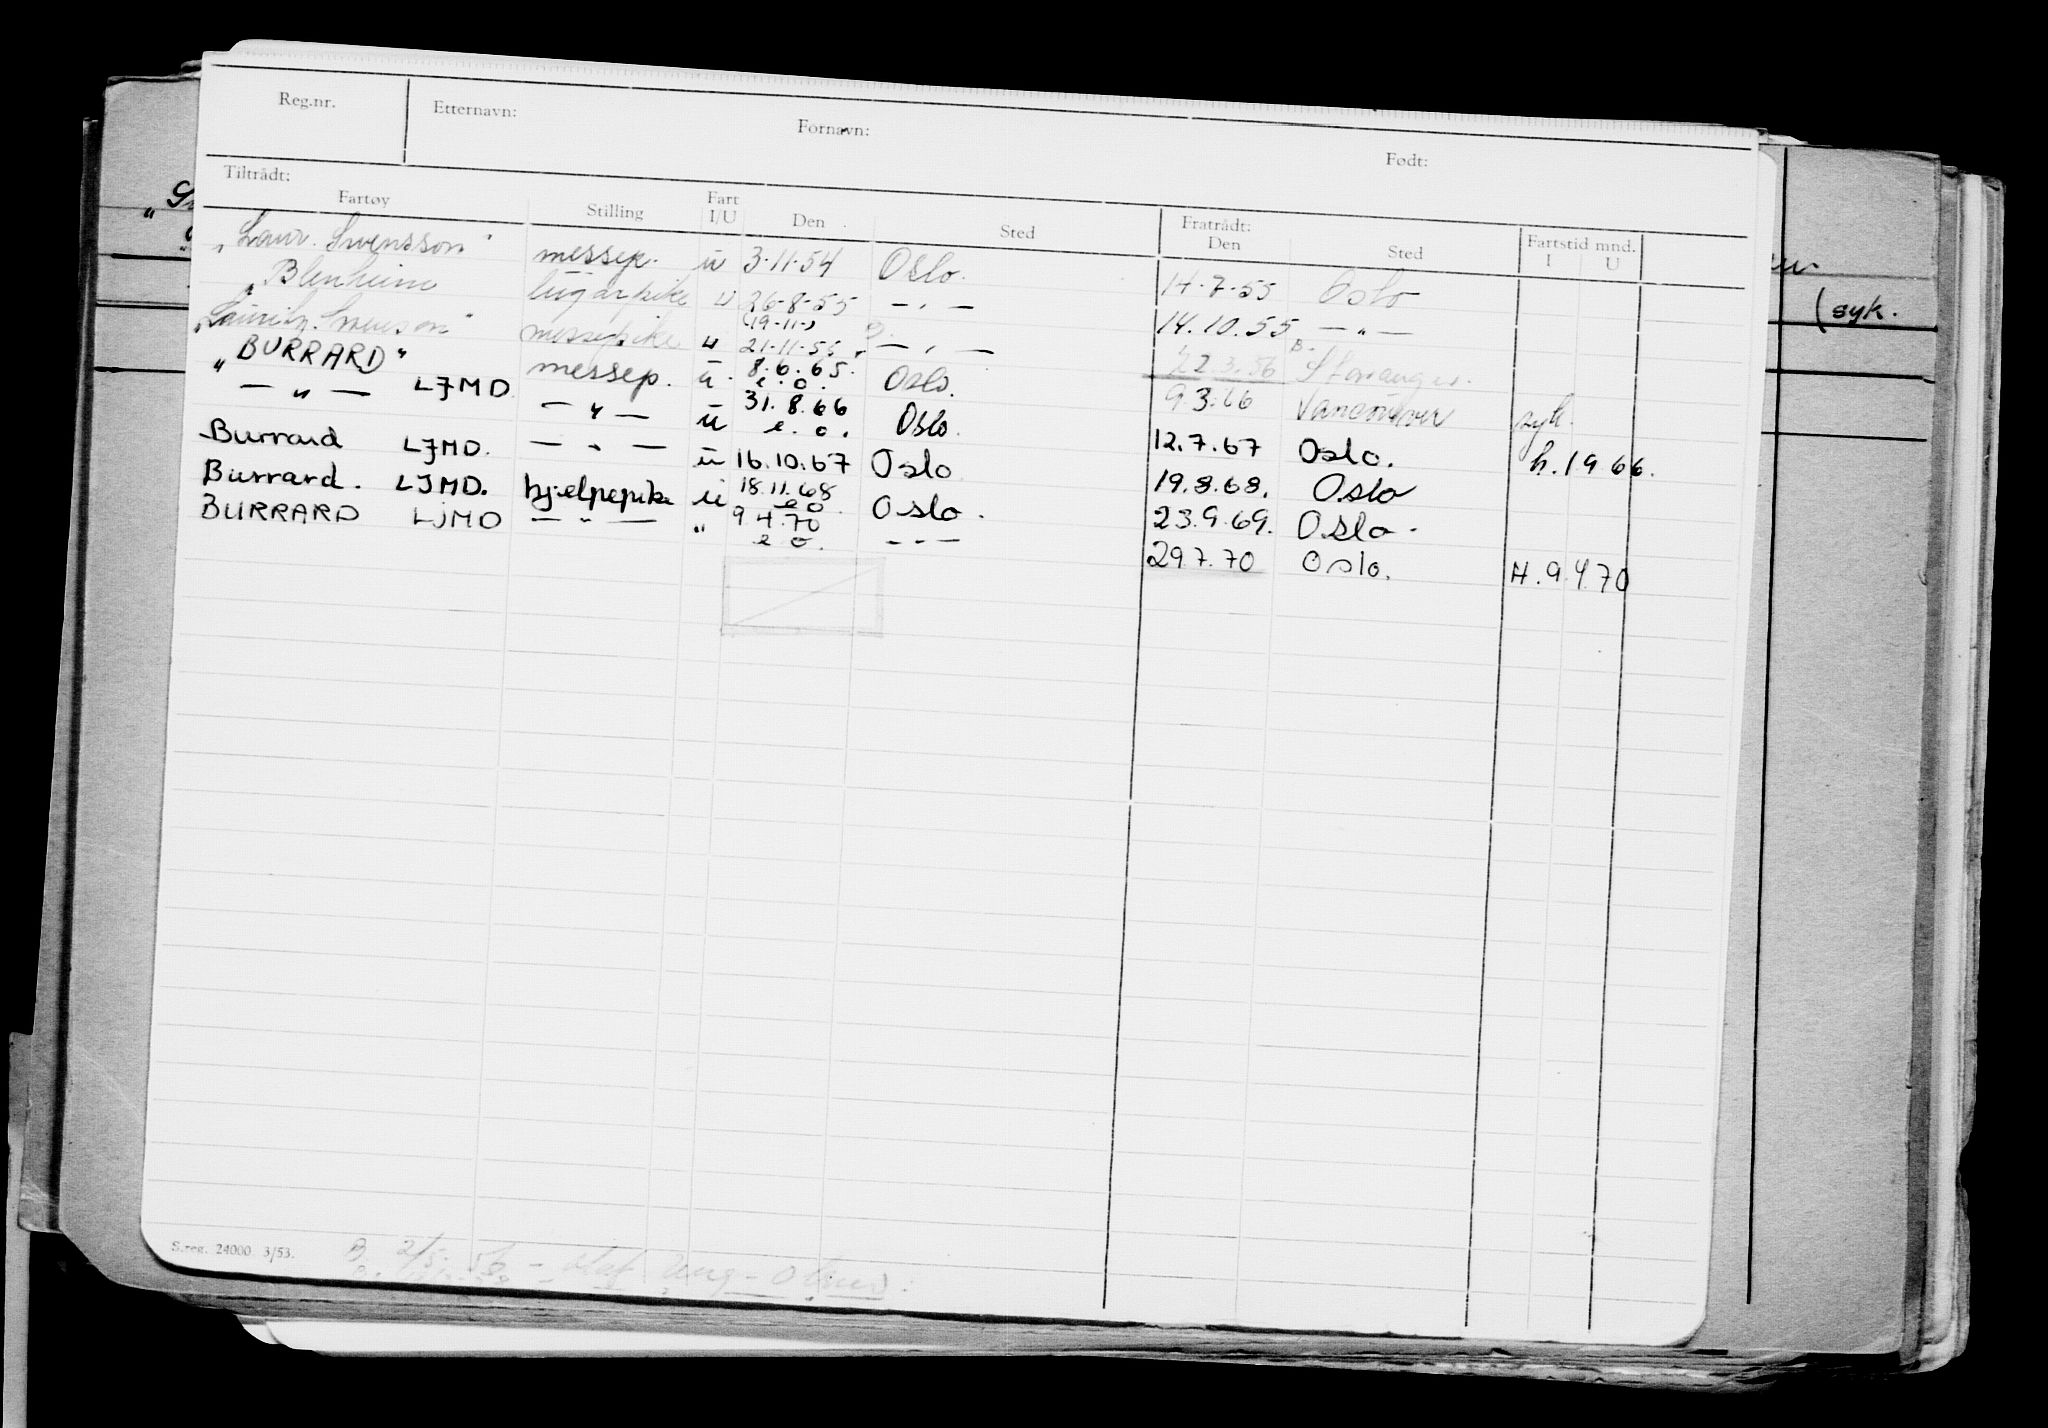 Reg.nr. Etternavn: Fornavn: Født:
Tiltrådt: Fratrådt:
Fartøy Stilling Fart I/U Den Sted Den Sted Fartstid mnd. I U
„Laur. Swensson" messep. u 3-11-54 Oslo. 14-7-55 Oslo
„Blenheim lugarpike u 26-8-55 — „ — 14.10.55 — „ —
(19-11-)
„Lauritz Swenson" messepike u 21-11-55 — „ — 22.3.56 Stavanger.
„BURRARD" messep. u. 8.6.65. e.o. Oslo. 9.3.66 Vancouver syk.
— „ — LJMD — „ — u 31.8.66 e.o. Oslo. 12.7.67 Oslo. h.1966.
Burrard LJMD. — „ — u 16.10.67 Oslo 19.8.68. Oslo
Burrard. LJMD. hjelpepike u 18.11.68 e o. Oslo. 23.9.69. Oslo.
BURRARD LJMD — „ — „ 9 4.70 e o. — - — 29.7.70 Oslo. H.9.4.70
(syk.
S.reg. 24000 3/53.
B. 2/5-56 -